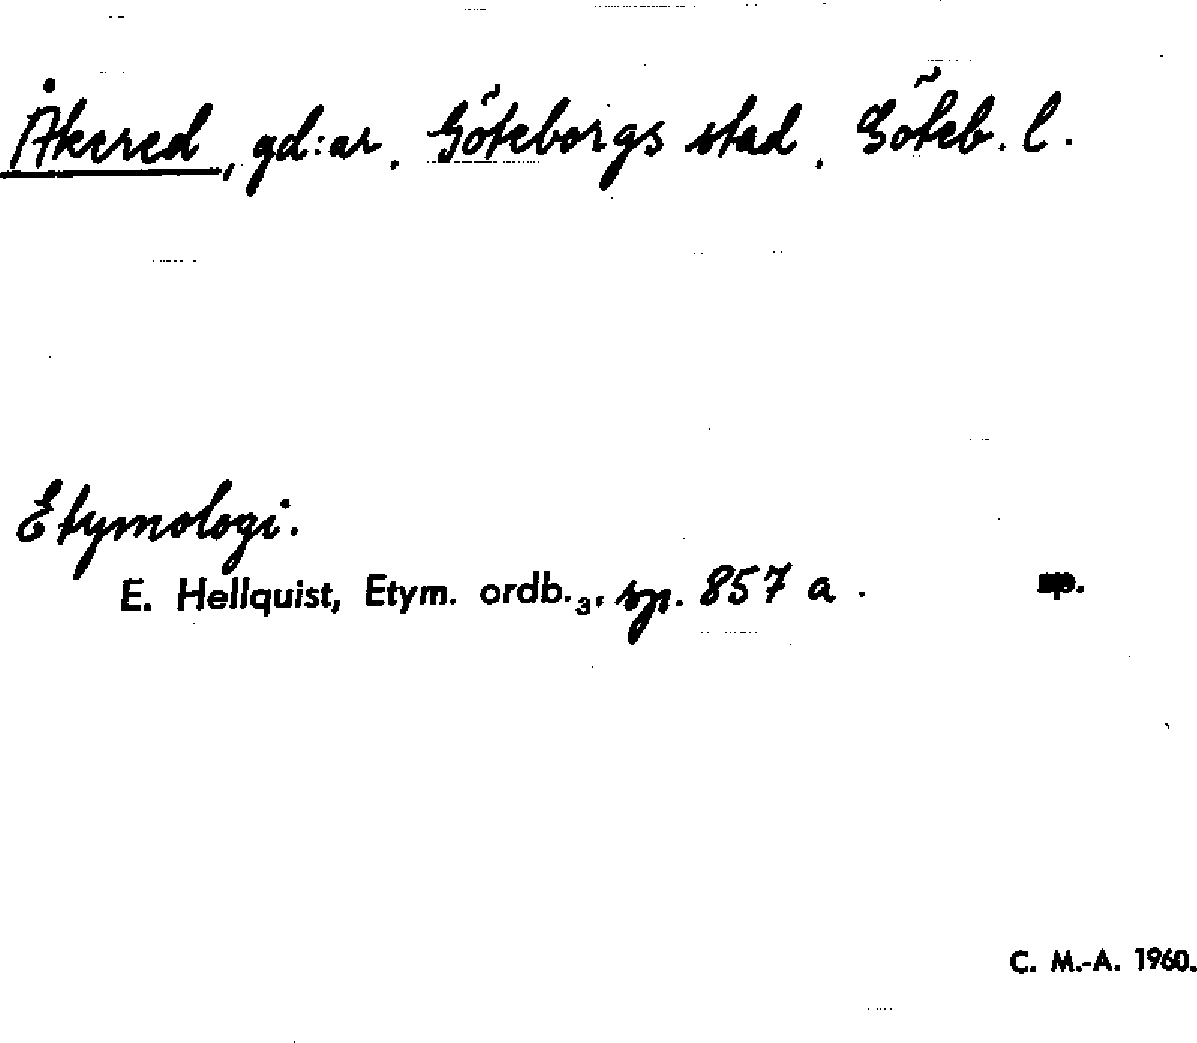 Åkered, gd:ar. Göteborgs stad. Göteb. l.
Etymologi.
E. Hellquist, Etym. ordb.₃, sp. 857 a. sp.
C. M.-A. 1960.